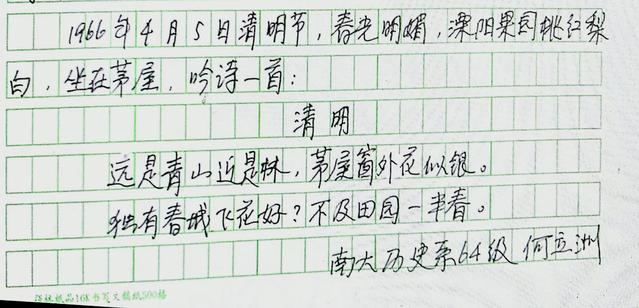 1966年4月5日清明节，春光明媚，溧阳果园桃红梨
白，坐在茅屋，吟诗一首：
清明
远是青山近是林，茅屋窗外花似银。
独有春城飞花好？不及田园一半春。
南大历史系64级 何立洲
16K书写文稿纸500格